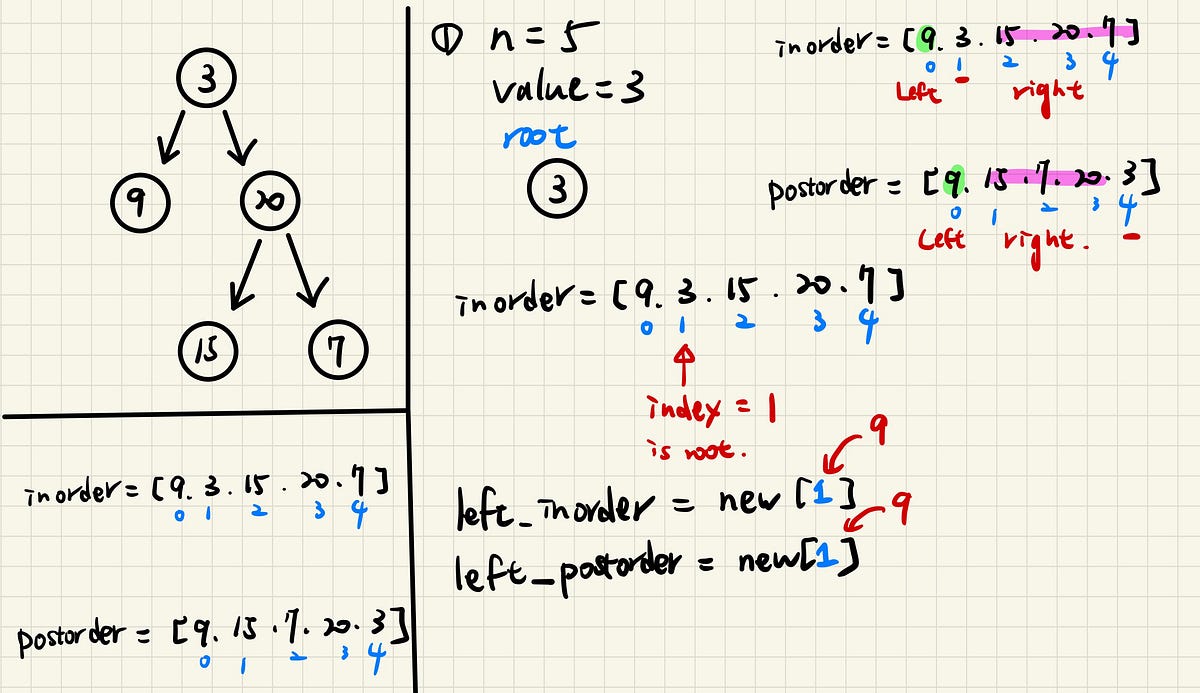 3
9
20
15
7
inorder = [9. 3. 15. 20. 7]
0 1 2 3 4
postorder = [9. 15. 7. 20. 3]
0 1 2 3 4
① n = 5
value = 3
root
3
inorder = [9. 3. 15. 20. 7]
0 1 2 3 4
Left right
postorder = [9. 15. 7. 20. 3]
0 1 2 3 4
Left right.
inorder = [9. 3. 15. 20. 7]
0 1 2 3 4
index = 1
is root.
9
left_inorder = new [1]
9
left_postorder = new[1]